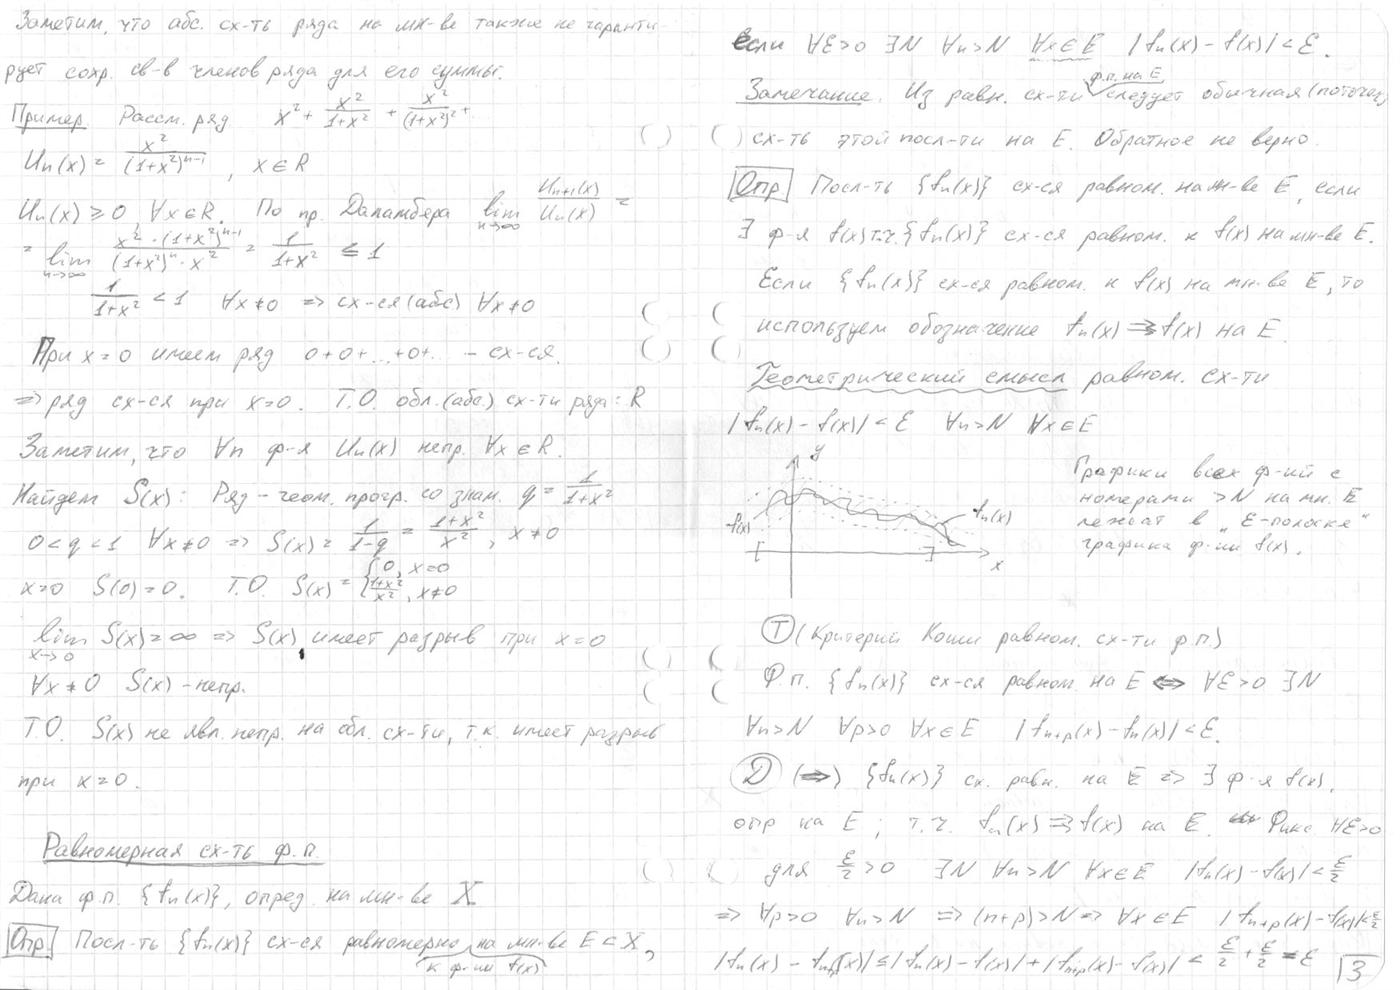 Заметим, что абс. сх-ть ряда на мн-ве также не гаранти-
рует сохр. св-в членов ряда для его суммы.
Пример. Рассм. ряд x² + x²/(1+x²) + x²/(1+x²)² +
Uₙ(x) = x²/(1+x²)ⁿ⁻¹, x ∈ R
Uₙ(x) ≥ 0, ∀x∈R. По пр. Даламбера lim n→∞ Uₙ₊₁(x)/Uₙ(x) =
= lim n→∞ x²·(1+x²)ⁿ⁻¹/(1+x²)ⁿ·x² = 1/(1+x²) ≤ 1
1/(1+x²) < 1 ∀x≠0 => сх-ся (абс) ∀x≠0
При x=0 имеем ряд 0+0+...+0+... - сх-ся.
=> ряд сх-ся при x=0. Т.О. обл. (абс.) сх-ти ряда: R
Заметим, что ∀n ф-я Uₙ(x) непр. ∀x∈R.
Найдем S(x): Ряд - геом. прогр. со знам. q = 1/(1+x²)
0<q<1 ∀x≠0 => S(x) = x²/(1-q) = (1+x²)/x², x≠0
x=0 S(0)=0. Т.О. S(x) = {0, x=0
(1+x²)/x², x≠0
lim x→0 S(x)=∞ => S(x) имеет разрыв при x=0
∀x≠0 S(x) - непр.
Т.О. S(x) не явл. непр. на обл. сх-ти, т.к. имеет разрыв
при x=0.
Равномерная сх-ть ф.п.
Дана ф.п. {fₙ(x)}, опред. на мн-ве X
Опр. Посл-ть {fₙ(x)} сх-ся равномерно на мн-ве E⊂X,
к ф-ии f(x)
если ∀ε>0 ∃N ∀n>N ∀x∈E |fₙ(x) - f(x)| < ε.
ф.п. на E
Замечание. Из равн. сх-ти следует обычная (поточеч)
сх-ть этой посл-ти на E. Обратное не верно.
Опр. Посл-ть {fₙ(x)} сх-ся равном. на мн-ве E, если
∃ ф-я f(x) т.ч. {fₙ(x)} сх-ся равном. к f(x) на мн-ве E.
Если {fₙ(x)} сх-ся равном. к f(x) на мн-ве E, то
используем обозначение fₙ(x) ⇉ f(x) на E.
Геометрический смысл равном. сх-ти
|fₙ(x) - f(x)| < ε ∀n>N ∀x∈E
y
f(x)
fₙ(x)
x
Графики всех ф-ий с
номерами >N на мн. E
лежат в „ε-полоске"
графика ф-ии f(x).
Т (Критерий Коши равном. сх-ти ф.п.)
Ф.п. {fₙ(x)} сх-ся равном. на E <=> ∀ε>0 ∃N
∀n>N ∀p>0 ∀x∈E |fₙ₊ₚ(x) - fₙ(x)| < ε.
Д (=>) {fₙ(x)} сх. равн. на E => ∃ ф-я f(x),
опр на E; т.ч. fₙ(x) ⇉ f(x) на E. Фикс. ∀ε>0
для ε/2 > 0 ∃N ∀n>N ∀x∈E |fₙ(x) - f(x)| < ε/2
=> ∀p>0 ∀n>N => (n+p)>N => ∀x∈E |fₙ₊ₚ(x) - f(x)| < ε/2
|fₙ(x) - fₙ₊ₚ(x)| ≤ |fₙ(x) - f(x)| + |fₙ₊ₚ(x) - f(x)| < ε/2 + ε/2 = ε
3